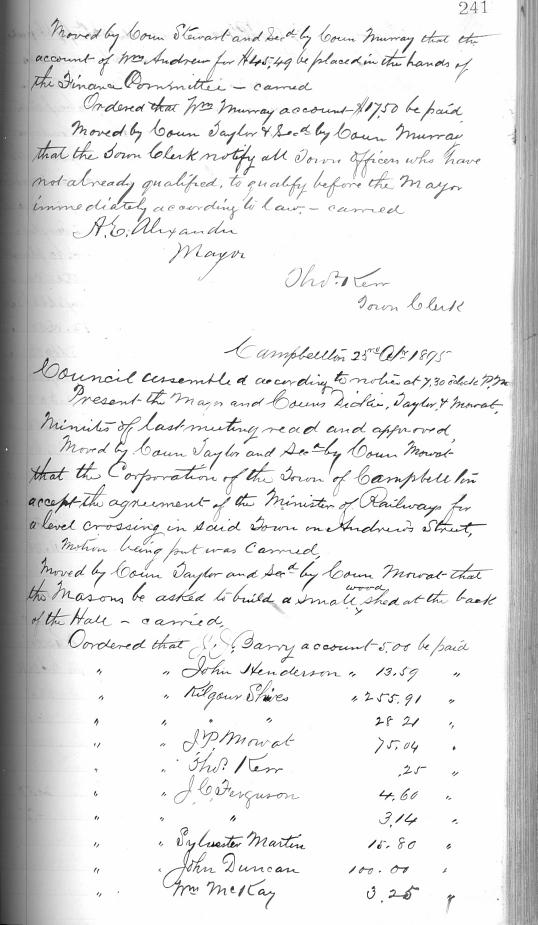 241
Moved by Coun Stewart and Secd by Coun Murray that the
account of Wm Andrew for $45.49 be placed in the hands of
the Finance Committee – carried
Ordered that Wm Murray account $17.50 be paid
Moved by Coun Taylor & Secd by Coun Murray
that the Town Clerk notify all Town Officers who have
not already qualified, to qualify before the Mayor
immediately according to law, – carried
A.E. Alexander
Mayor
Thos. Kerr
Town Clerk
Campbellton 23rd Octr 1895
Council assembled according to notice at 7.30 o'clock P.M
Present the Mayor and Couns Dickie, Taylor, & Mowat,
Minutes of last meeting read and approved,
Moved by Coun Taylor and Secd by Coun Mowat
that the Corporation of the Town of Campbellton
accept the agreement of the Minister of Railways for
a level crossing in said Town on Andrew's Street,
Motion being put was carried,
Moved by Coun Taylor and Secd by Coun Mowat that
the Masons be asked to build a small wood shed at the back
of the Hall – carried,
Oordered that Barry account 5.00 be paid
" " John Henderson " 13.59 "
" " Kilgour Shives " 255.91 "
" " " " 28 21 "
" " J.P. Mowat 75.04 "
" " Thos. Kerr .25 "
" " J.C. Ferguson 4.60 "
" " " 3.14 "
" " Sylvester Martin 15.80 "
" " John Duncan 100.00 "
" " Wm McKay 3.25 "